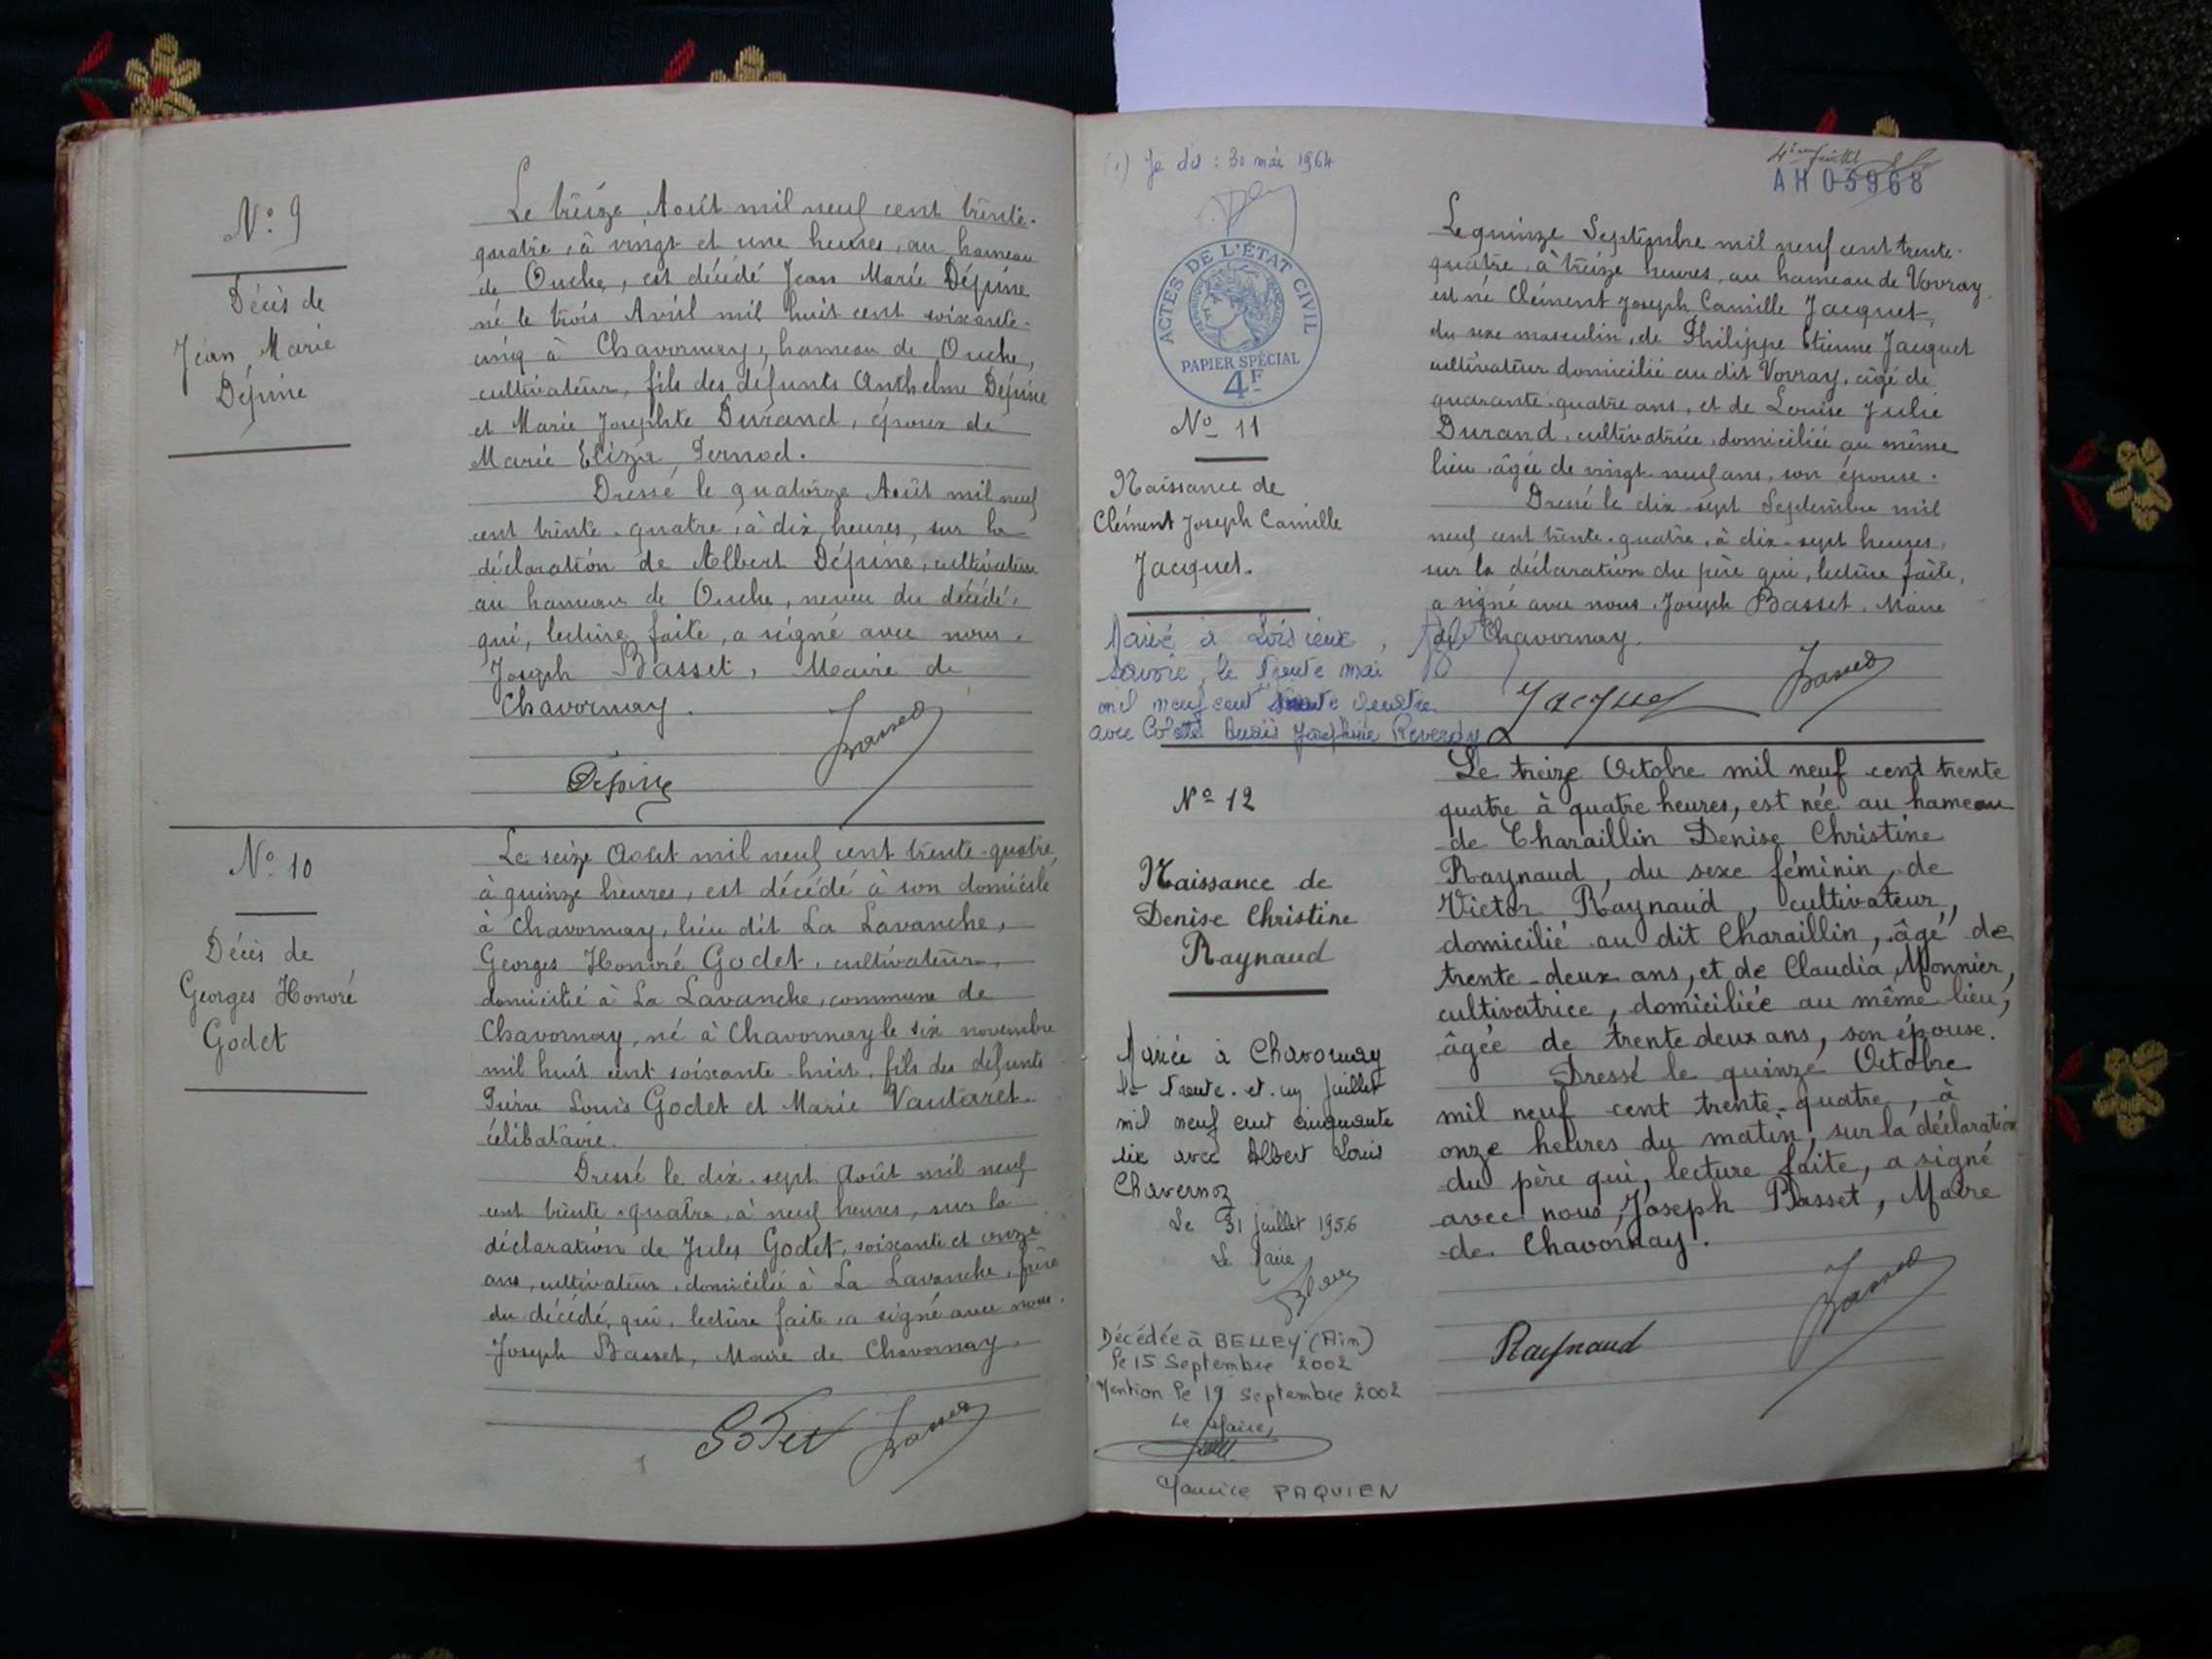 N° 9
Décès de
Jean Marie
Dépine
Le treize Août mil neuf cent trente-
quatre, à vingt et une heures, au hameau
de Ouche, est décédé Jean Marie Dépine
né le trois Avril mil huit cent soixante-
cinq à Chavornay, hameau de Ouche,
cultivateur, fils des défunts Anthelme Dépine
et Marie Josephte Durand, époux de
Marie Eliza Pernod.
Dressé le quatorze Août mil neuf
cent trente-quatre, à dix heures, sur la
déclaration de Albert Dépine, cultivateur
au hameau de Ouche, neveu du décédé,
qui, lecture faite, a signé avec nous,
Joseph Basset, Maire de
Chavornay.
Dépine
Basset
N° 10
Décès de
Georges Honoré
Godet
Le seize Août mil neuf cent trente-quatre,
à quinze heures, est décédé à son domicile
à Chavornay, lieu dit La Lavanche,
Georges Honoré Godet, cultivateur,
domicilié à La Lavanche, commune de
Chavornay, né à Chavornay le six novembre
mil huit cent soixante-huit, fils des défunts
Pierre Louis Godet et Marie Vautaret.
célibataire.
Dressé le dix-sept Août mil neuf
cent trente-quatre, à neuf heures, sur la
déclaration de Jules Godet, soixante et onze
ans, cultivateur, domicilié à La Lavanche, frère
du décédé, qui, lecture faite, a signé avec nous.
Joseph Basset, Maire de Chavornay.
Godet Basset
(1) Je dis : 30 mai 1964
ACTES DE L'ÉTAT CIVIL
PAPIER SPÉCIAL
4F
N° 11
Naissance de
Clément Joseph Camille
Jacquet.
Marié à Loisieux,
Savoie, le trente mai
mil neuf cent
avec Colette Josephine Reverdy
AH 05968
Le quinze Septembre mil neuf cent trente-
quatre, à treize heures, au hameau de Vovray
est né Clément Joseph Camille Jacquet,
du sexe masculin, de Philippe Etienne Jacquet
cultivateur domicilié au dit Vovray, âgé de
quarante-quatre ans, et de Louise Julie
Durand, cultivatrice, domiciliée au même
lieu, âgée de vingt-neuf ans, son épouse.
Dressé le dix-sept Septembre mil
neuf cent trente-quatre, à dix-sept heures,
sur la déclaration du père qui, lecture faite,
a signé avec nous, Joseph Basset, Maire
de Chavornay.
Jacquet
Basset
N° 12
Naissance de
Denise Christine
Raynaud
Mariée à Chavornay
le trente-et-un juillet
mil neuf cent cinquante
six avec Albert Louis
Chavernoz
Le 31 juillet 1956
Le Maire
Décédée à BELLEY (Ain)
le 15 Septembre 2002
Mention le 19 septembre 2002
Le Maire,
Maurice PAQUIEN
Le treize Octobre mil neuf cent trente
quatre à quatre heures, est née au hameau
de Charaillin Denise Christine
Raynaud, du sexe féminin, de
Victor Raynaud, cultivateur,
domicilié au dit Charaillin, âgé de
trente-deux ans, et de Claudia Monnier,
cultivatrice, domiciliée au même lieu,
âgée de trente deux ans, son épouse.
Dressé le quinze Octobre
mil neuf cent trente-quatre, à
onze heures du matin, sur la déclaration
du père qui, lecture faite, a signé
avec nous, Joseph Basset, Maire
de Chavornay.
Raynaud
Basset